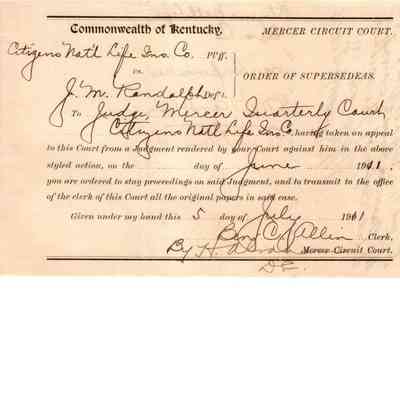 Commonwealth of Kentucky, MERCER CIRCUIT COURT.
Citizens Nat'l Life Ins. Co. Pl'ff.
vs. ORDER OF SUPERSEDEAS.
J. M. Randolph Def't.
To Judge, Mercer Quarterly Court
Citizens Nat'l Life Ins. Co. having taken an appeal
to this Court from a Judgment rendered by your Court against him in the above
styled action, on the day of June 1911.
you are ordered to stay proceedings on said Judgment, and to transmit to the office
of the clerk of this Court all the original papers in said case.
Given under my hand this 5 day of July 1911
Ben C. Allin Clerk,
By H. Mercer Circuit Court.
D.C.